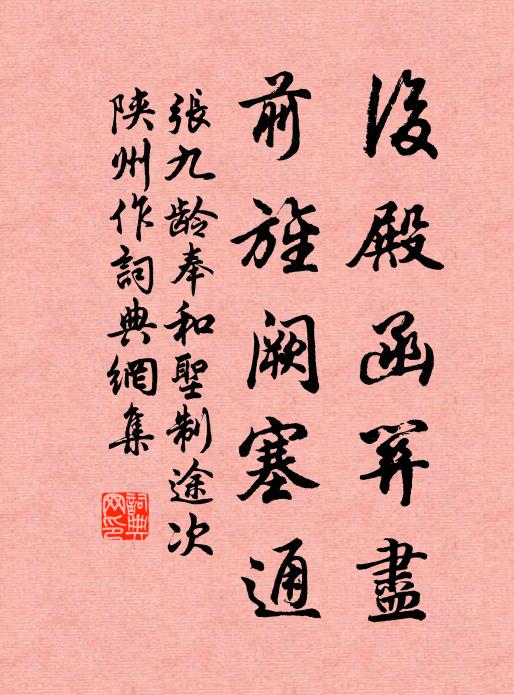 後殿函關盡
前旌闕塞通
張九齡奉和聖制途次
陝州作詞典網集
詞典網印